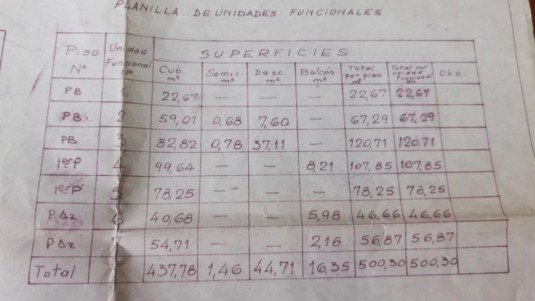 PLANILLA DE UNIDADES FUNCIONALES
Piso Nº Unidad Funcional Nº SUPERFICIES
Cub. m² Semic. m² Desc. m² Balcón m² Total por piso m² Total por unidad funcional m² Obs.
PB 1 22,67 — — — 22,67 22,67
PB. 2 59,01 0,68 7,60 — 67,29 67,29
PB 3 82,82 0,78 37,11 — 120,71 120,71
1erP 4 99,64 — — 8,21 107,85 107,85
1erP 5 78,25 — — — 78,25 78,25
P.Az 6 40,68 — — 5,98 46,66 46,66
P.Az 7 54,71 — — 2,16 56,87 56,87
Total 437,78 1,46 44,71 16,35 500,30 500,30